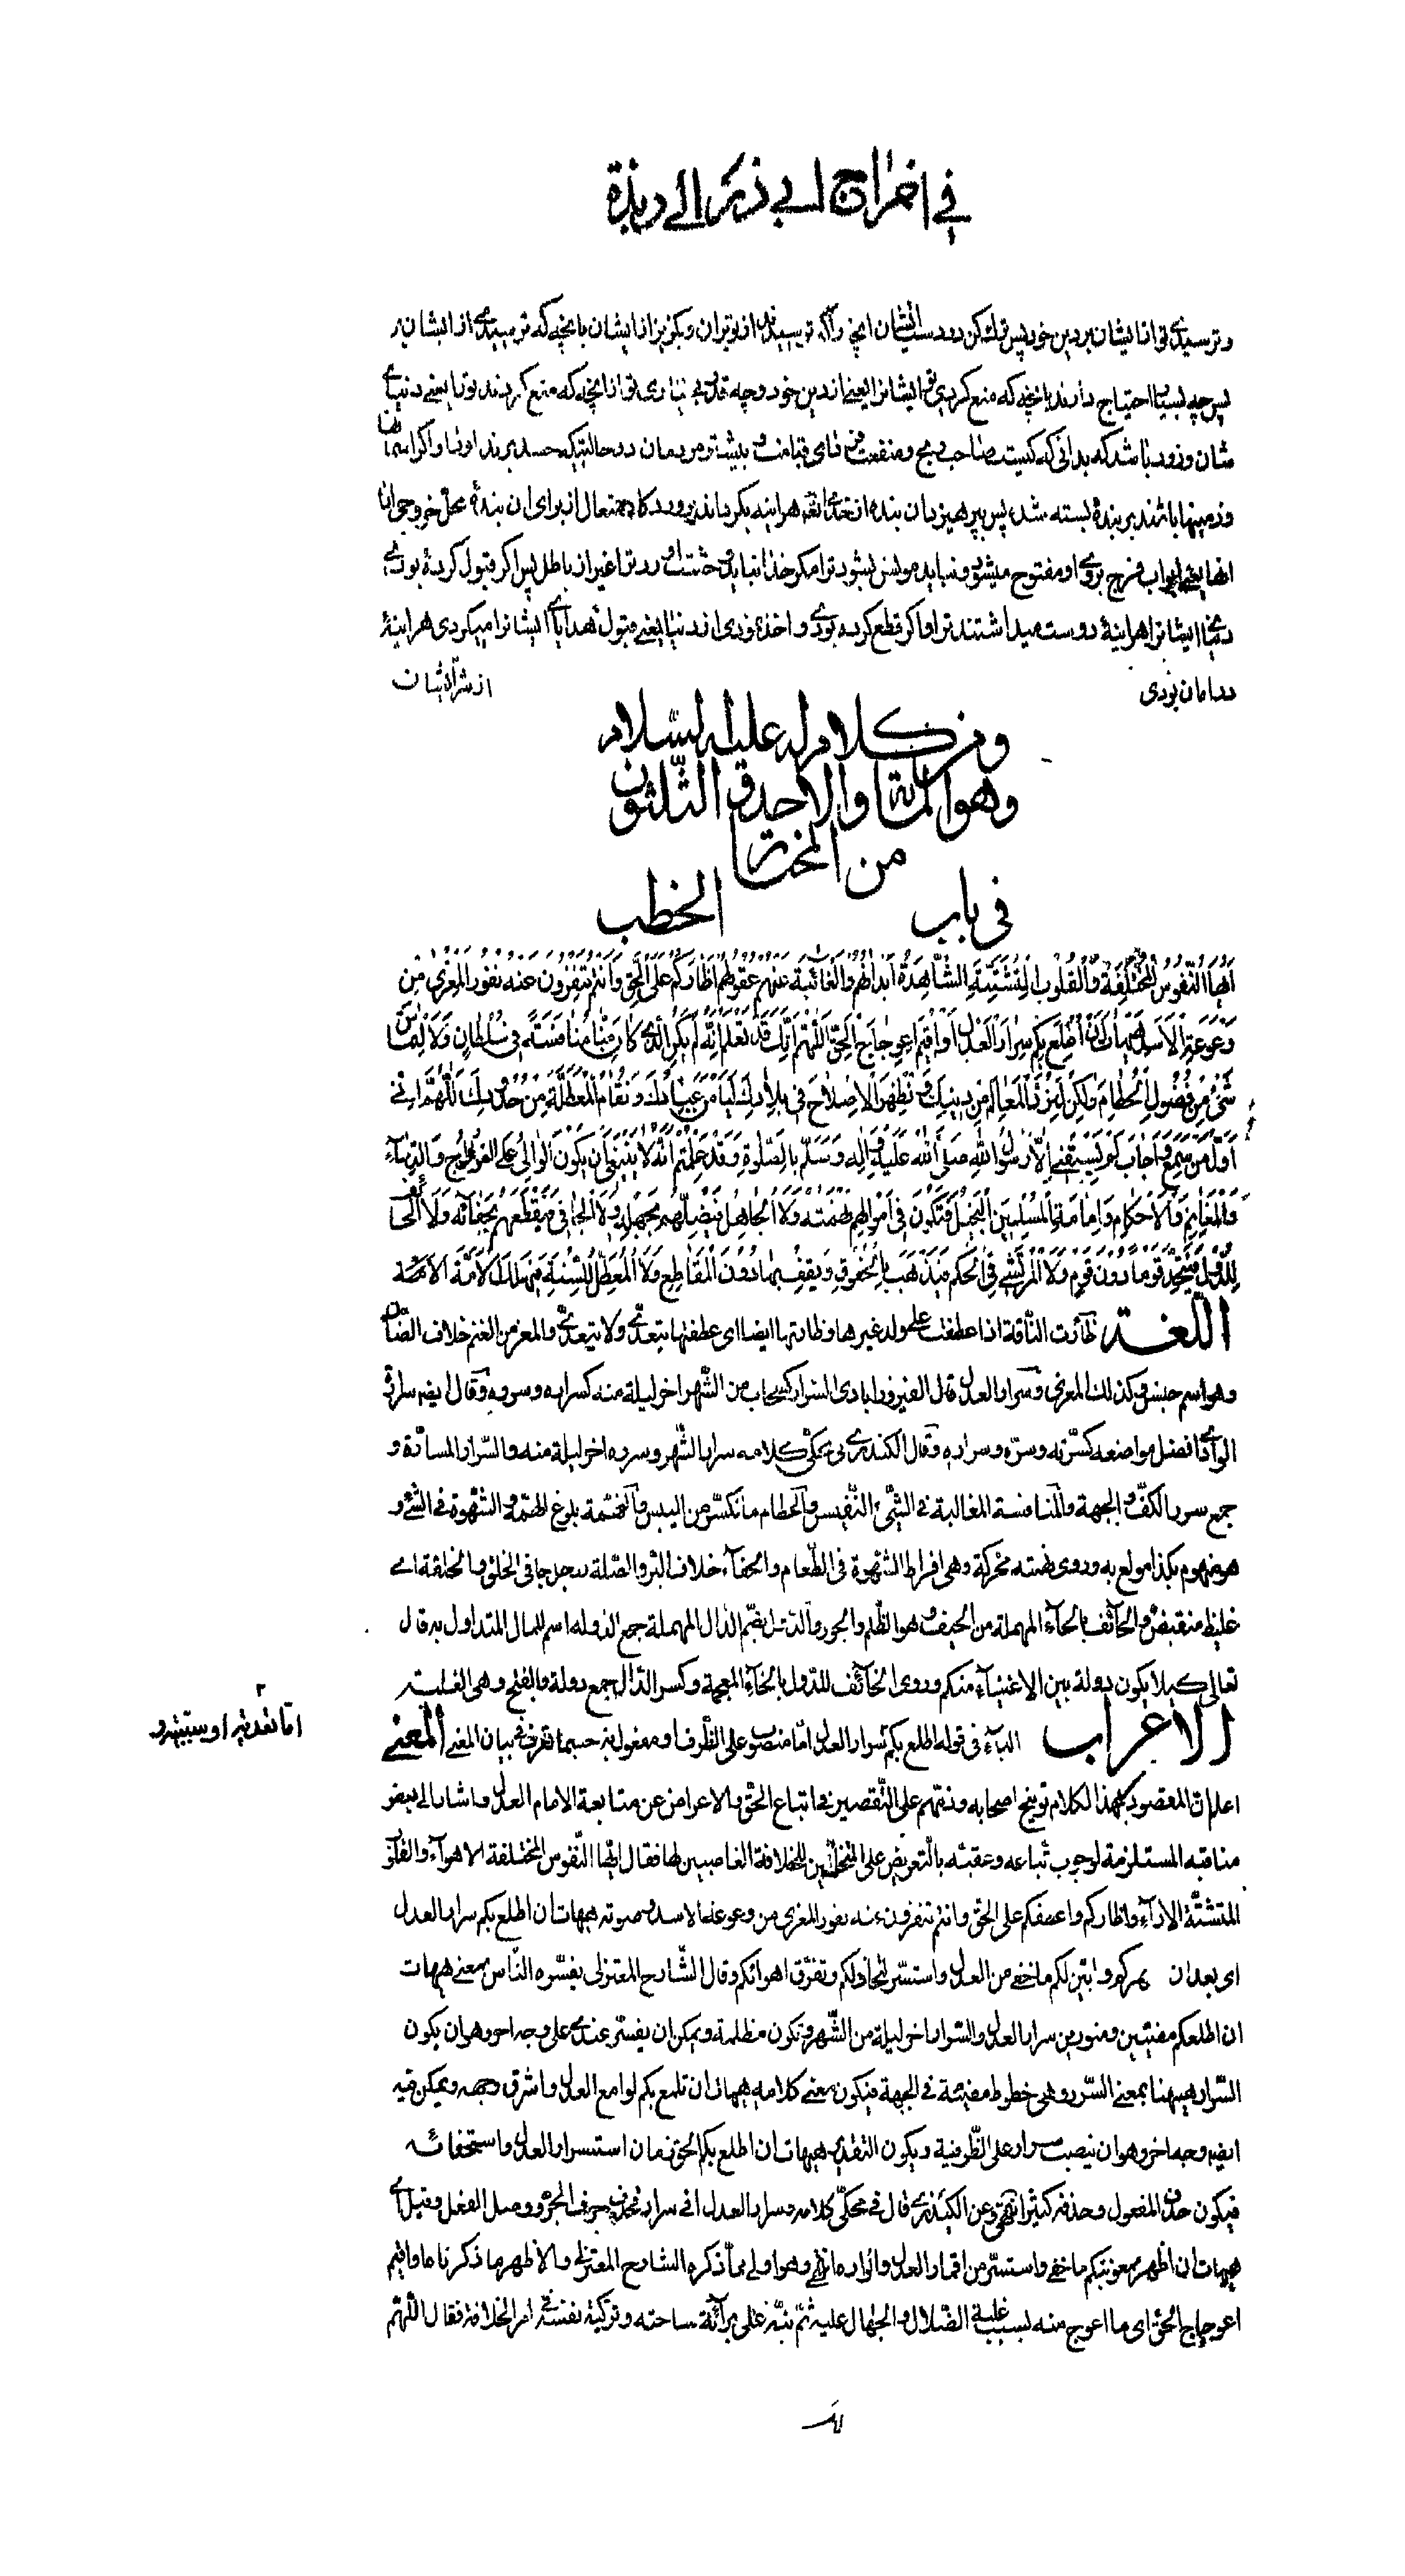 في اخراج ابي ذر الى ربذة
و ترسیدی تو از ایشان بر دین خود پس ترك كن در دست ایشان انچیز را که ترسیدند از تو بران و بگریز از ایشان بانچه که ترسیدی از ایشان بر
پس چه بسیار احتیاج دارند بانچه که منع کردی تو ایشانرا یعنی از دین خود و چه قدر بی نیازی تو از انچه که منع کردند تو را یعنی دنیای
شان و زود باشد که بدانی که کیست صاحب ربح و منفعت در فردای قیامت و بیشتر مردمان در حالتیکه حسد برند او را و اگر اسمانها
و زمینها باشند بر بندۀ بسته شده پس بپرهیزد ان بنده از خدای تعالی هراینه بگرداند پروردگار متعال از برای ان بندۀ محل خروجی از
انها یعنی ابواب فرج بروی او مفتوح میشود و نباید مونس بشود ترا مگر حق و نباید وحشت اورد ترا غیر از باطل پس اگر قبول کردۀ بودی
دنیای ایشانرا هراینۀ دوست میداشتند ترا و اگر قطع کرده بودی و اخذ نمودی از دنیا یعنی قبول هدایای ایشانرا میکردی هراینۀ
در امان بودی از شر ایشان
ومن كلام له عليه السلام
وهو المائة والاحد والثلثون
من المختار
في باب الخطب
اَيَّتُهَا النُّفُوسُ الْمُخْتَلِفَةُ وَالْقُلُوبُ الْمُتَشَتِّتَةُ الشّاهِدَةُ اَبْدانُهُمْ وَالْغائِبَةُ عَنْهُمْ عُقُولُهُمْ اَظْاَرُكُمْ عَلَى الْحَقِّ وَاَنْتُمْ تَنْفِرُونَ عَنْهُ نُفُورَ الْمِعْزى مِنْ
وَعْوَعَةِ الْاَسَدِ هَيْهاتَ اَنْ اَطْلَعَ بِكُمْ سِرارَ الْعَدْلِ اَوْ اُقيمَ اعْوِجاجَ الْحَقِّ اَللّهُمَّ اِنَّكَ قَدْ تَعْلَمُ اَنَّهُ لَمْ يَكُنِ الَّذي كانَ مِنّا مُنافَسَةً في سُلْطانٍ وَلَا الْتِماسَ
شَيْءٍ مِنْ فُضُولِ الْحُطامِ وَلكِنْ لِنَرُدَّ الْمَعالِمَ مِنْ دينِكَ وَنُظْهِرَ الْاِصْلاحَ في بِلادِكَ فَيَأْمَنَ الْمَظْلُومُونَ مِنْ عِبادِكَ وَتُقامَ الْمُعَطَّلَةُ مِنْ حُدُودِكَ اَللّهُمَّ اِنّي
اَوَّلُ مَنْ اَنابَ وَسَمِعَ وَاَجابَ لَمْ يَسْبِقْني اِلّا رَسُولُ اللهِ صَلَّى اللهُ عَلَيْهِ وَالِهِ وَسَلَّمَ بِالصَّلوةِ وَقَدْ عَلِمْتُمْ اَنَّهُ لا يَنْبَغي اَنْ يَكُونَ الْوالي عَلَى الْفُرُوجِ وَالدِّماءِ
وَالْمَغانِمِ وَالْاَحْكامِ وَاِمامَةِ الْمُسْلِمينَ الْبَخيلُ فَتَكُونَ في اَمْوالِهِمْ نَهْمَتُهُ وَلَا الْجاهِلُ فَيُضِلَّهُمْ بِجَهْلِهِ وَلَا الْجافي فَيَقْطَعَهُمْ بِجَفائِهِ وَلَا الْحائِفُ
لِلدُّوَلِ فَيَتَّخِذَ قَوْمًا دُونَ قَوْمٍ وَلَا الْمُرْتَشي فِي الْحُكْمِ فَيَذْهَبَ بِالْحُقُوقِ وَيَقِفَ بِها دُونَ الْمَقاطِعِ وَلَا الْمُعَطِّلُ لِلسُّنَّةِ فَيُهْلِكَ الْاُمَّةَ
اللغة ظأرت الناقة اذا عطفت على ولد غيرها وظأرتها ايضا اى عطفتها يتعدى ولا يتعدى والمعز من الغنم خلاف الضأن
وهو اسم جنس وكذلك المعزى وسرار العدل قال الفيروزابادى السرار كسحاب من الشهر اخر ليلة منه كسراره وسرره وقال ايضا سرارة
الوادى افضل مواضعه كسرته وسره وسراره وقال الكندرى فى محكى كلامه سرار الشهر وسرره اخر ليلة منه والسرار المسارة و
جمع سرر الكف والجبهة والمنافسة المغالبة فى الشىء النفيس والحطام ما تكسر من اليبس والنهمة بلوغ الهمة والشهوة فى الشىء و
هو منهوم بكذا مولع به وروى نهمته محركة وهى افراط الشهوة فى الطعام والجفاء خلاف البر والصلة رجل جافى الخلق والخلقة اى
غليظ منقبض والحائف بالحاء المهملة من الحيف وهو الظلم والجور والدول بضم الدال المهملة جمع الدولة اسم للمال المتداول به قال
تعالى كيلا يكون دولة بين الاغنياء منكم وروى الخائف للدول بالخاء المعجمة وكسر الدال جمع دولة بالفتح وهى الغلبة
الاعراب الباء فى قوله اطلع بكم سرار العدل اما منصوب على الظرف او مفعول به حسبما تعرف فى بيان المعنى المعنى
اما للتعدية او سببية و
اعلم ان المقصود بهذا الكلام توبيخ اصحابه وذمهم على التقصير فى اتباع الحق والاعراض عن متابعة الامام العدل واشار الى بعض
مناقبه المستلزمة لوجوب اتباعه وعقبه بالتعريض على المنتحلين للخلافة الغاصبين لها فقال ايتها النفوس المختلفة الاهواء والقلوب
المتشتتة الاراء اظأركم واعطفكم على الحق وانتم تنفرون عنه نفور المعزى من وعوعة الاسد وصوته هيهات ان اطلع بكم سرار العدل
اى بعد ان وابين لكم ما خفى من العدل واستسر لتخاذلكم وتفرق اهوائكم وقال الشارح المعتزلى يفسره الناس بمعنى هيهات
ان اطلعكم مضيئين ومنورين سرار العدل والسرار اخر ليلة من الشهر وتكون مظلمة ويمكن ان يفسر عندى على وجه اخر وهو ان يكون
السرار هيهنا بمعنى السرر وهى خطوط مضيئة فى الجبهة فيكون معنى كلامه هيهات ان تلمع بكم لوامع العدل واشرق وجهه ويمكن فيه
ايضا وجه اخر وهو ان ينصب سرار على الظرفية ويكون التقدير هيهات ان اطلع بكم الحق زمان استسرار العدل واستخفائه
فيكون حذف المفعول وحذفه كثير انتهى وعن الكيذرى قال فى محكى كلامه وسرار العدل اى فى سراره فحذف حرف الجر ووصل الفعل وقيل اى
هيهات ان اظهر بمعونتكم ما خفى واستسر من اقمار العدل وانواره انتهى وهو اولى مما ذكره الشارح المعتزلى والاظهر ما ذكرنا ما واقيم
اعوجاج الحق اى ما اعوج منه بسبب غلبة الضلال والجهال عليه ثم نبه على براءة ساحته وتزكية نفسه فى امر الخلافة فقال اللهم